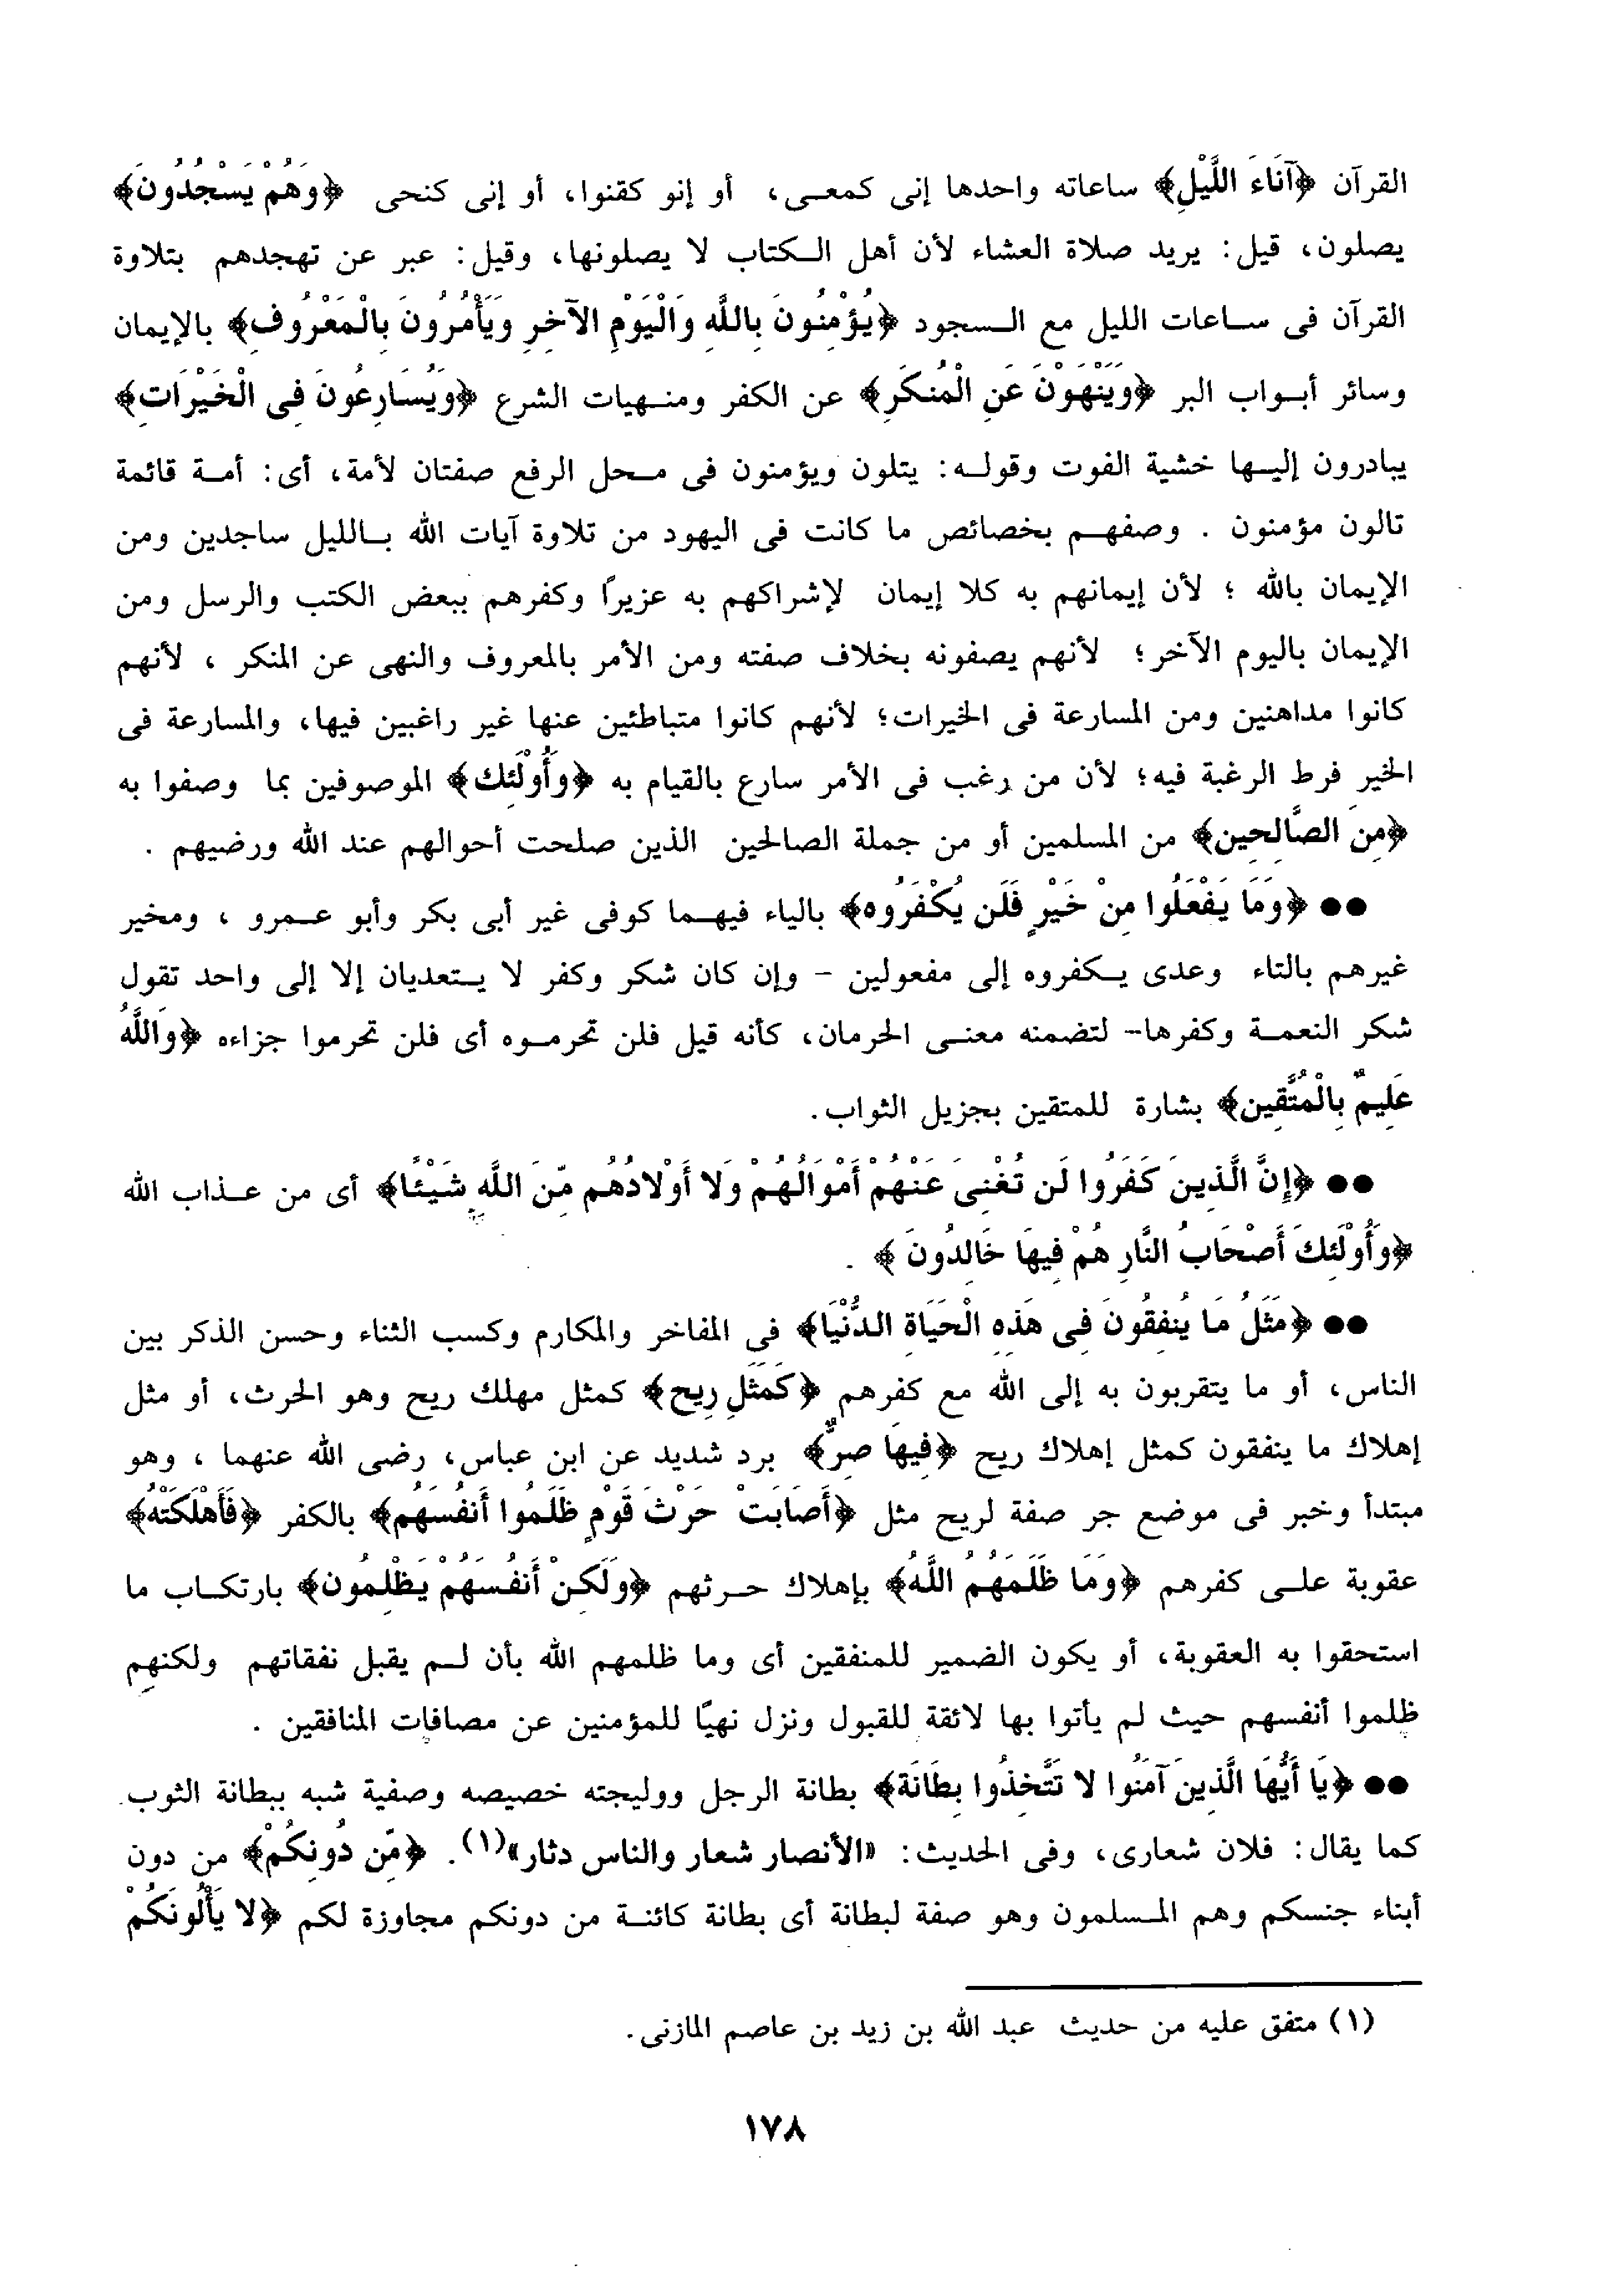 القرآن ﴿آنَاءَ اللَّيْلِ﴾ ساعاته واحدها إنى كمعى، أو إنو كقنوا، أو إنى كنحى ﴿وَهُمْ يَسْجُدُونَ﴾
يصلون، قيل: يريد صلاة العشاء لأن أهل الكتاب لا يصلونها، وقيل: عبر عن تهجدهم بتلاوة
القرآن فى ساعات الليل مع السجود ﴿يُؤْمِنُونَ بِاللَّهِ وَالْيَوْمِ الآخِرِ وَيَأْمُرُونَ بِالْمَعْرُوفِ﴾ بالإيمان
وسائر أبواب البر ﴿وَيَنْهَوْنَ عَنِ الْمُنكَرِ﴾ عن الكفر ومنهيات الشرع ﴿وَيُسَارِعُونَ فِى الْخَيْرَاتِ﴾
يبادرون إليها خشية الفوت وقوله: يتلون ويؤمنون فى محل الرفع صفتان لأمة، أى: أمة قائمة
تالون مؤمنون . وصفهم بخصائص ما كانت فى اليهود من تلاوة آيات الله بالليل ساجدين ومن
الإيمان بالله ؛ لأن إيمانهم به كلا إيمان لإشراكهم به عزيرًا وكفرهم ببعض الكتب والرسل ومن
الإيمان باليوم الآخر؛ لأنهم يصفونه بخلاف صفته ومن الأمر بالمعروف والنهى عن المنكر ، لأنهم
كانوا مداهنين ومن المسارعة فى الخيرات؛ لأنهم كانوا متباطئين عنها غير راغبين فيها، والمسارعة فى
الخير فرط الرغبة فيه؛ لأن من رغب فى الأمر سارع بالقيام به ﴿وَأُوْلَئِك﴾ الموصوفين بما وصفوا به
﴿مِنَ الصَّالِحِين﴾ من المسلمين أو من جملة الصالحين الذين صلحت أحوالهم عند الله ورضيهم .
●● ﴿وَمَا يَفْعَلُوا مِنْ خَيْرٍ فَلَن يُكْفَرُوه﴾ بالياء فيهما كوفى غير أبى بكر وأبو عمرو ، ومخير
غيرهم بالتاء وعدى يكفروه إلى مفعولين - وإن كان شكر وكفر لا يتعديان إلا إلى واحد تقول
شكر النعمة وكفرها- لتضمنه معنى الحرمان، كأنه قيل فلن تحرموه أى فلن تحرموا جزاءه ﴿وَاللَّهُ
عَلِيمٌ بِالْمُتَّقِين﴾ بشارة للمتقين بجزيل الثواب.
●● ﴿إِنَّ الَّذِينَ كَفَرُوا لَن تُغْنِىَ عَنْهُمْ أَمْوَالُهُمْ وَلا أَوْلادُهُم مِّنَ اللَّهِ شَيْئًا﴾ أى من عذاب الله
﴿وَأُوْلَئِكَ أَصْحَابُ النَّارِ هُمْ فِيهَا خَالِدُونَ ﴾ .
●● ﴿مَثَلُ مَا يُنفِقُونَ فِى هَذِهِ الْحَيَاةِ الدُّنْيَا﴾ فى المفاخر والمكارم وكسب الثناء وحسن الذكر بين
الناس، أو ما يتقربون به إلى الله مع كفرهم ﴿كَمَثَلِ رِيح﴾ كمثل مهلك ريح وهو الحرث، أو مثل
إهلاك ما ينفقون كمثل إهلاك ريح ﴿فِيهَا صِرٌّ﴾ برد شديد عن ابن عباس، رضى الله عنهما ، وهو
مبتدأ وخبر فى موضع جر صفة لريح مثل ﴿أَصَابَتْ حَرْثَ قَوْمٍ ظَلَمُوا أَنفُسَهُم﴾ بالكفر ﴿فَأَهْلَكَتْهُ﴾
عقوبة على كفرهم ﴿وَمَا ظَلَمَهُمُ اللَّهُ﴾ بإهلاك حرثهم ﴿وَلَكِنْ أَنفُسَهُمْ يَظْلِمُون﴾ بارتكاب ما
استحقوا به العقوبة، أو يكون الضمير للمنفقين أى وما ظلمهم الله بأن لم يقبل نفقاتهم ولكنهم
ظلموا أنفسهم حيث لم يأتوا بها لائقة للقبول ونزل نهيًا للمؤمنين عن مصافات المنافقين .
●● ﴿يَا أَيُّهَا الَّذِينَ آمَنُوا لا تَتَّخِذُوا بِطَانَة﴾ بطانة الرجل ووليجته خصيصه وصفية شبه ببطانة الثوب
كما يقال: فلان شعارى، وفى الحديث: «الأنصار شعار والناس دثار»(١). ﴿مِّن دُونِكُمْ﴾ من دون
أبناء جنسكم وهم المسلمون وهو صفة لبطانة أى بطانة كائنة من دونكم مجاوزة لكم ﴿لا يَأْلُونَكُمْ
(١) متفق عليه من حديث عبد الله بن زيد بن عاصم المازنى.
١٧٨